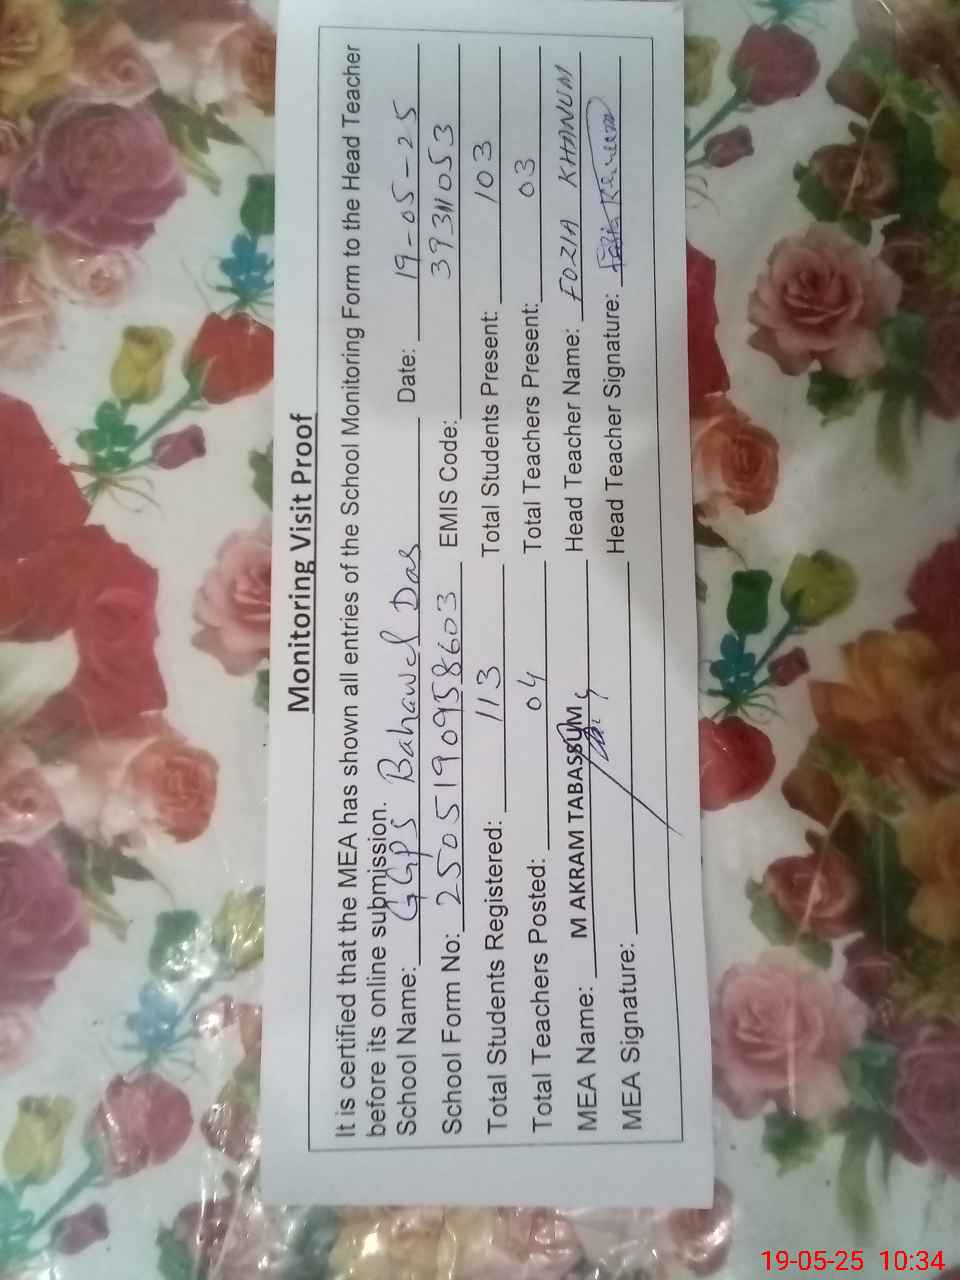 Monitoring Visit Proof
It is certified that the MEA has shown all entries of the School Monitoring Form to the Head Teacher
before its online submission.
School Name: GGPS Bahawal Das Date: 19-05-25
School Form No: 2505190958603 EMIS Code: 39311053
Total Students Registered: 113 Total Students Present: 103
Total Teachers Posted: 04 Total Teachers Present: 03
MEA Name: M AKRAM TABASSUM Head Teacher Name: FOZIA KHANUM
MEA Signature: Head Teacher Signature:
19-05-25 10:34